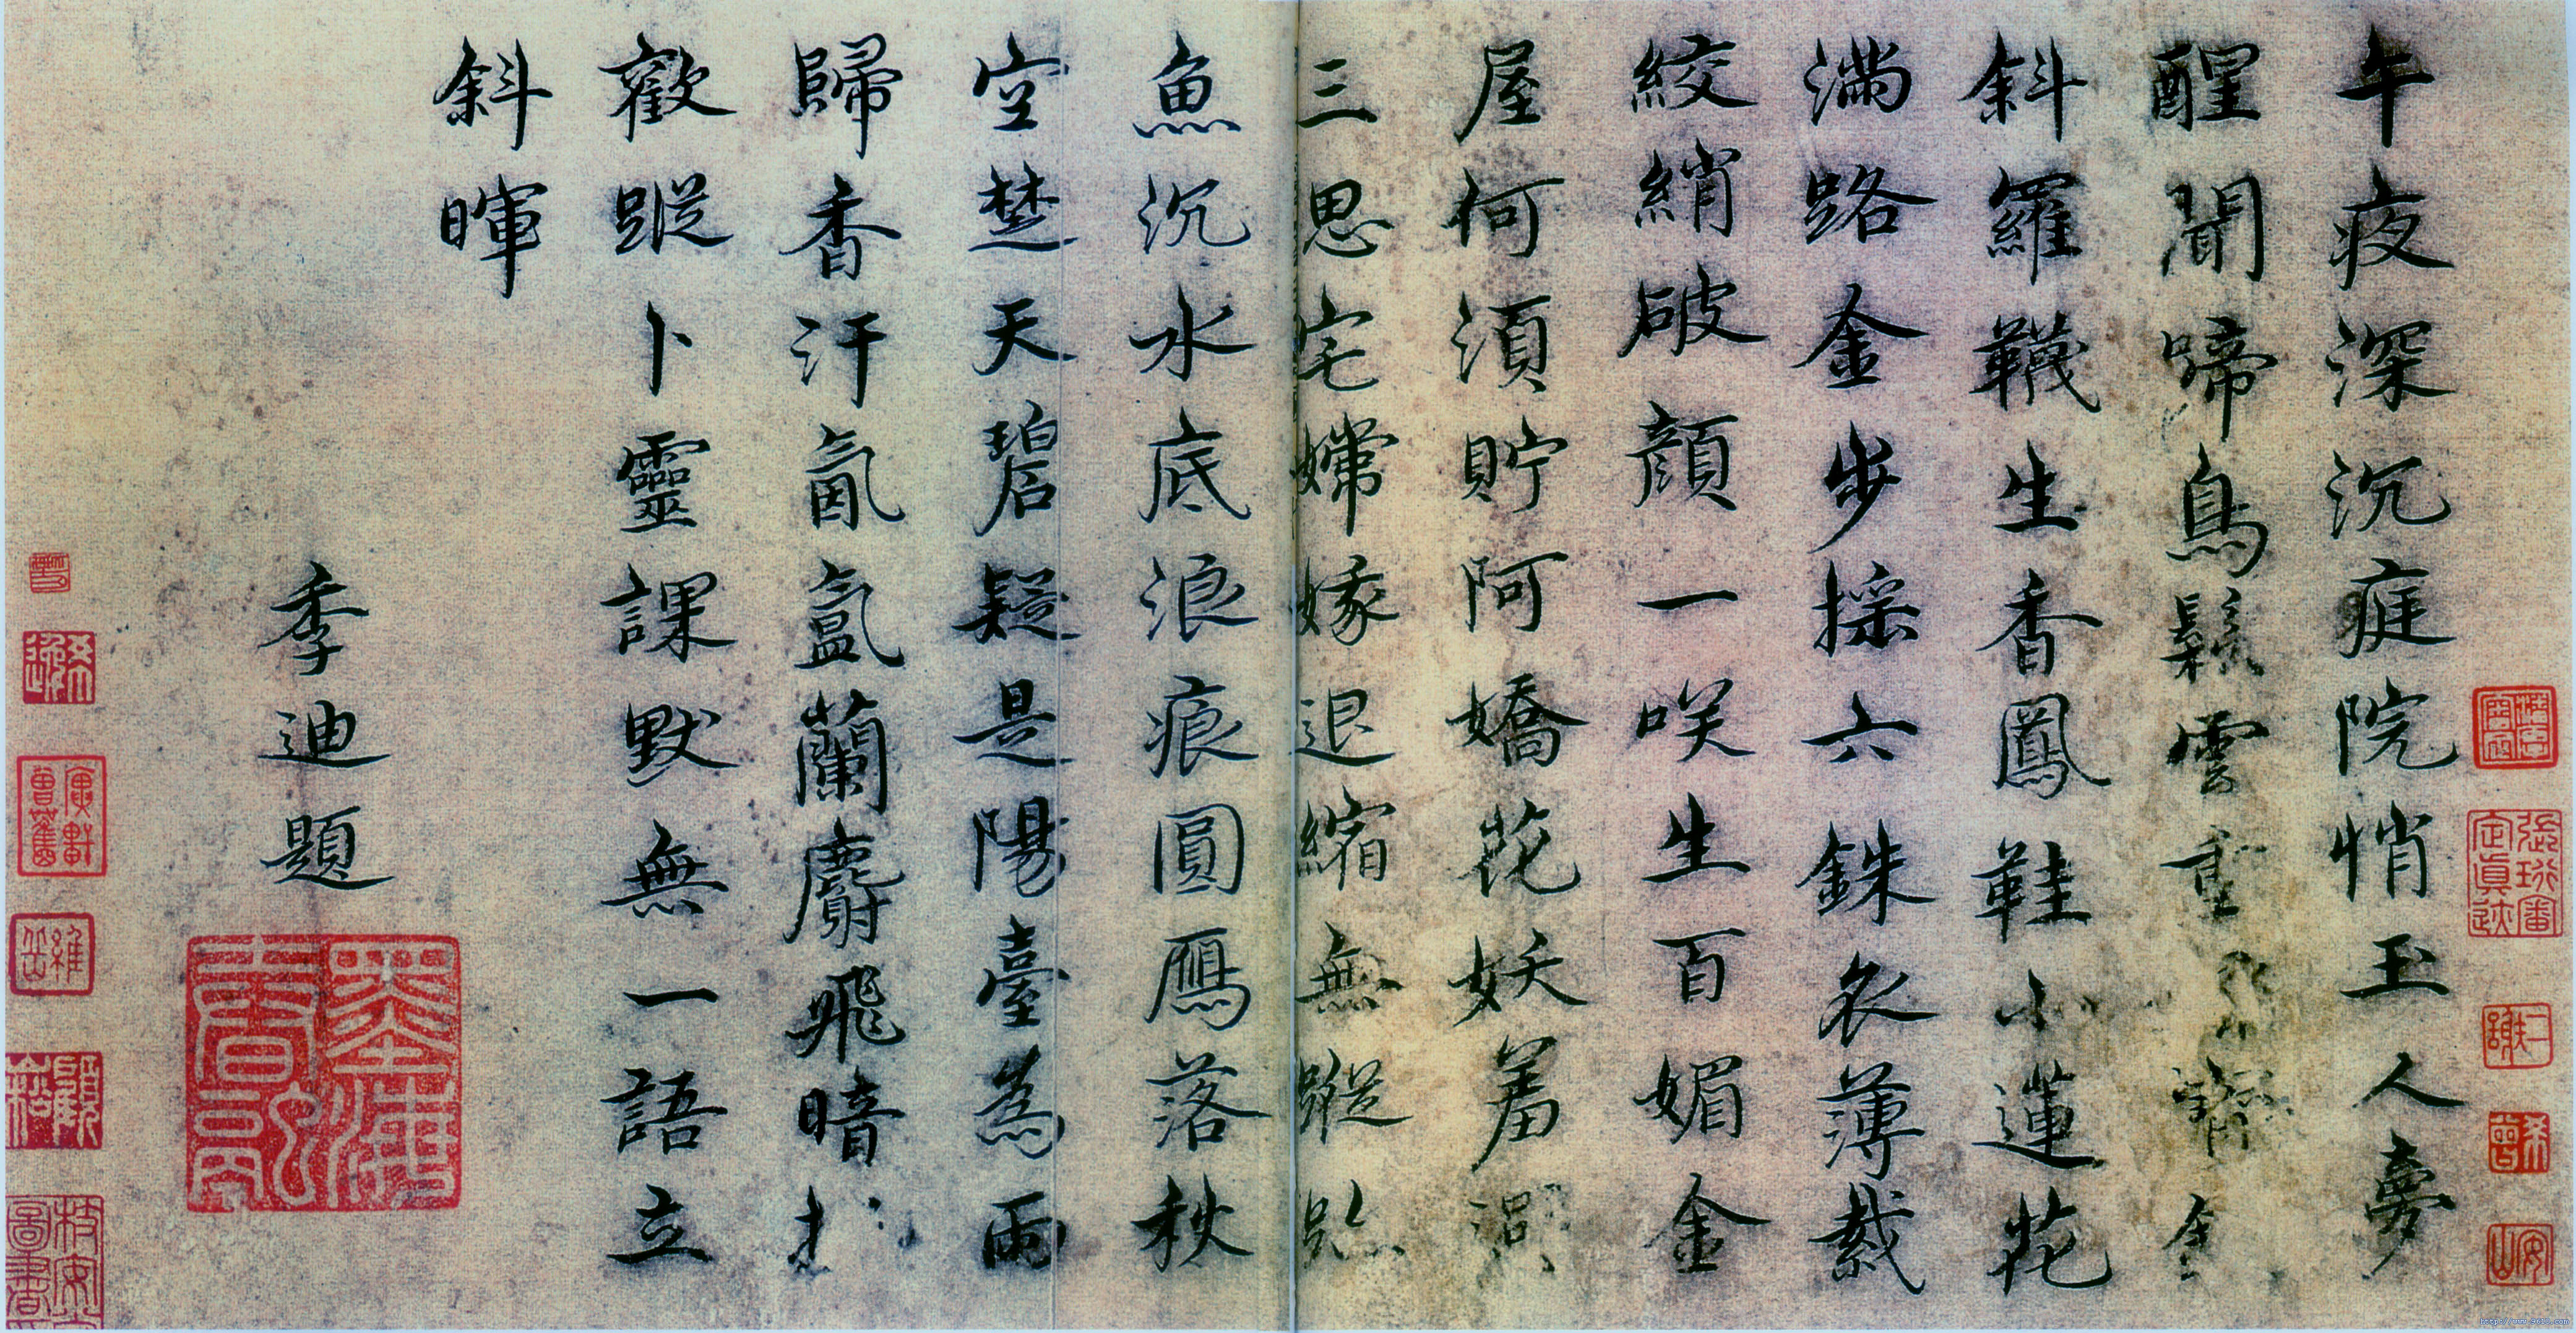 午夜深沉庭院悄玉人夢
醒聞啼鳥鬆雲重
斜羅韈生香鳳鞋小蓮花
滿路金步搖六銖衣薄裁
絞綃破顏一咲生百媚金
屋何須貯阿嬌花妖羞
三思宅嫦嫁退縮無蹤
魚沉水底浪痕圓鴈落秋
空楚天碧疑是陽臺為雨
歸香汗氤氳蘭麝飛暗
歡蹤卜靈課默無一語立
斜暉
季迪題